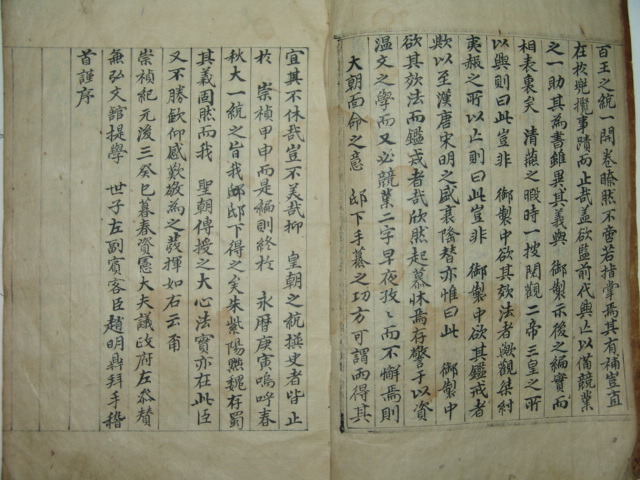 百王之統一開卷瞭然不啻若指掌焉其有補豈直
在於兜攬事蹟而止哉盖欲監前代興亡以備兢業
之一助其為書雖異其義與 御製示後之編實而
相表裏矣 清燕之暇時一披閱觀二帝三皇之所
以興則曰此豈非 御製中欲其效法者歟觀桀紂
夷赧之所以亡則曰此豈非 御製中欲其鑑戒者
歟以至漢唐宋明之盛衰隆替亦惟曰此 御製中
欲其效法而鑑戒者哉欣然起慕怵焉存警于以資
溫文之學而又必兢業二字早夜孜々而不懈焉則
大朝面命之意 邸下手纂之功方可謂兩得其
宜其不休哉豈不美哉抑 皇朝之統撰史者皆止
於 崇禎甲申而是編則終於 永曆庚寅嗚呼春
秋大一統之旨我邸邸下得之矣朱紫陽黜魏存蜀
其義固然而我 聖朝傳授之大心法實亦在此臣
又不勝欽仰感歎敬為之發揮如右云爾
崇禎紀元後三癸巳暮春資憲大夫議政府左叅贊
兼弘文館提學 世子左副賓客臣趙明鼎拜手稽
首謹序